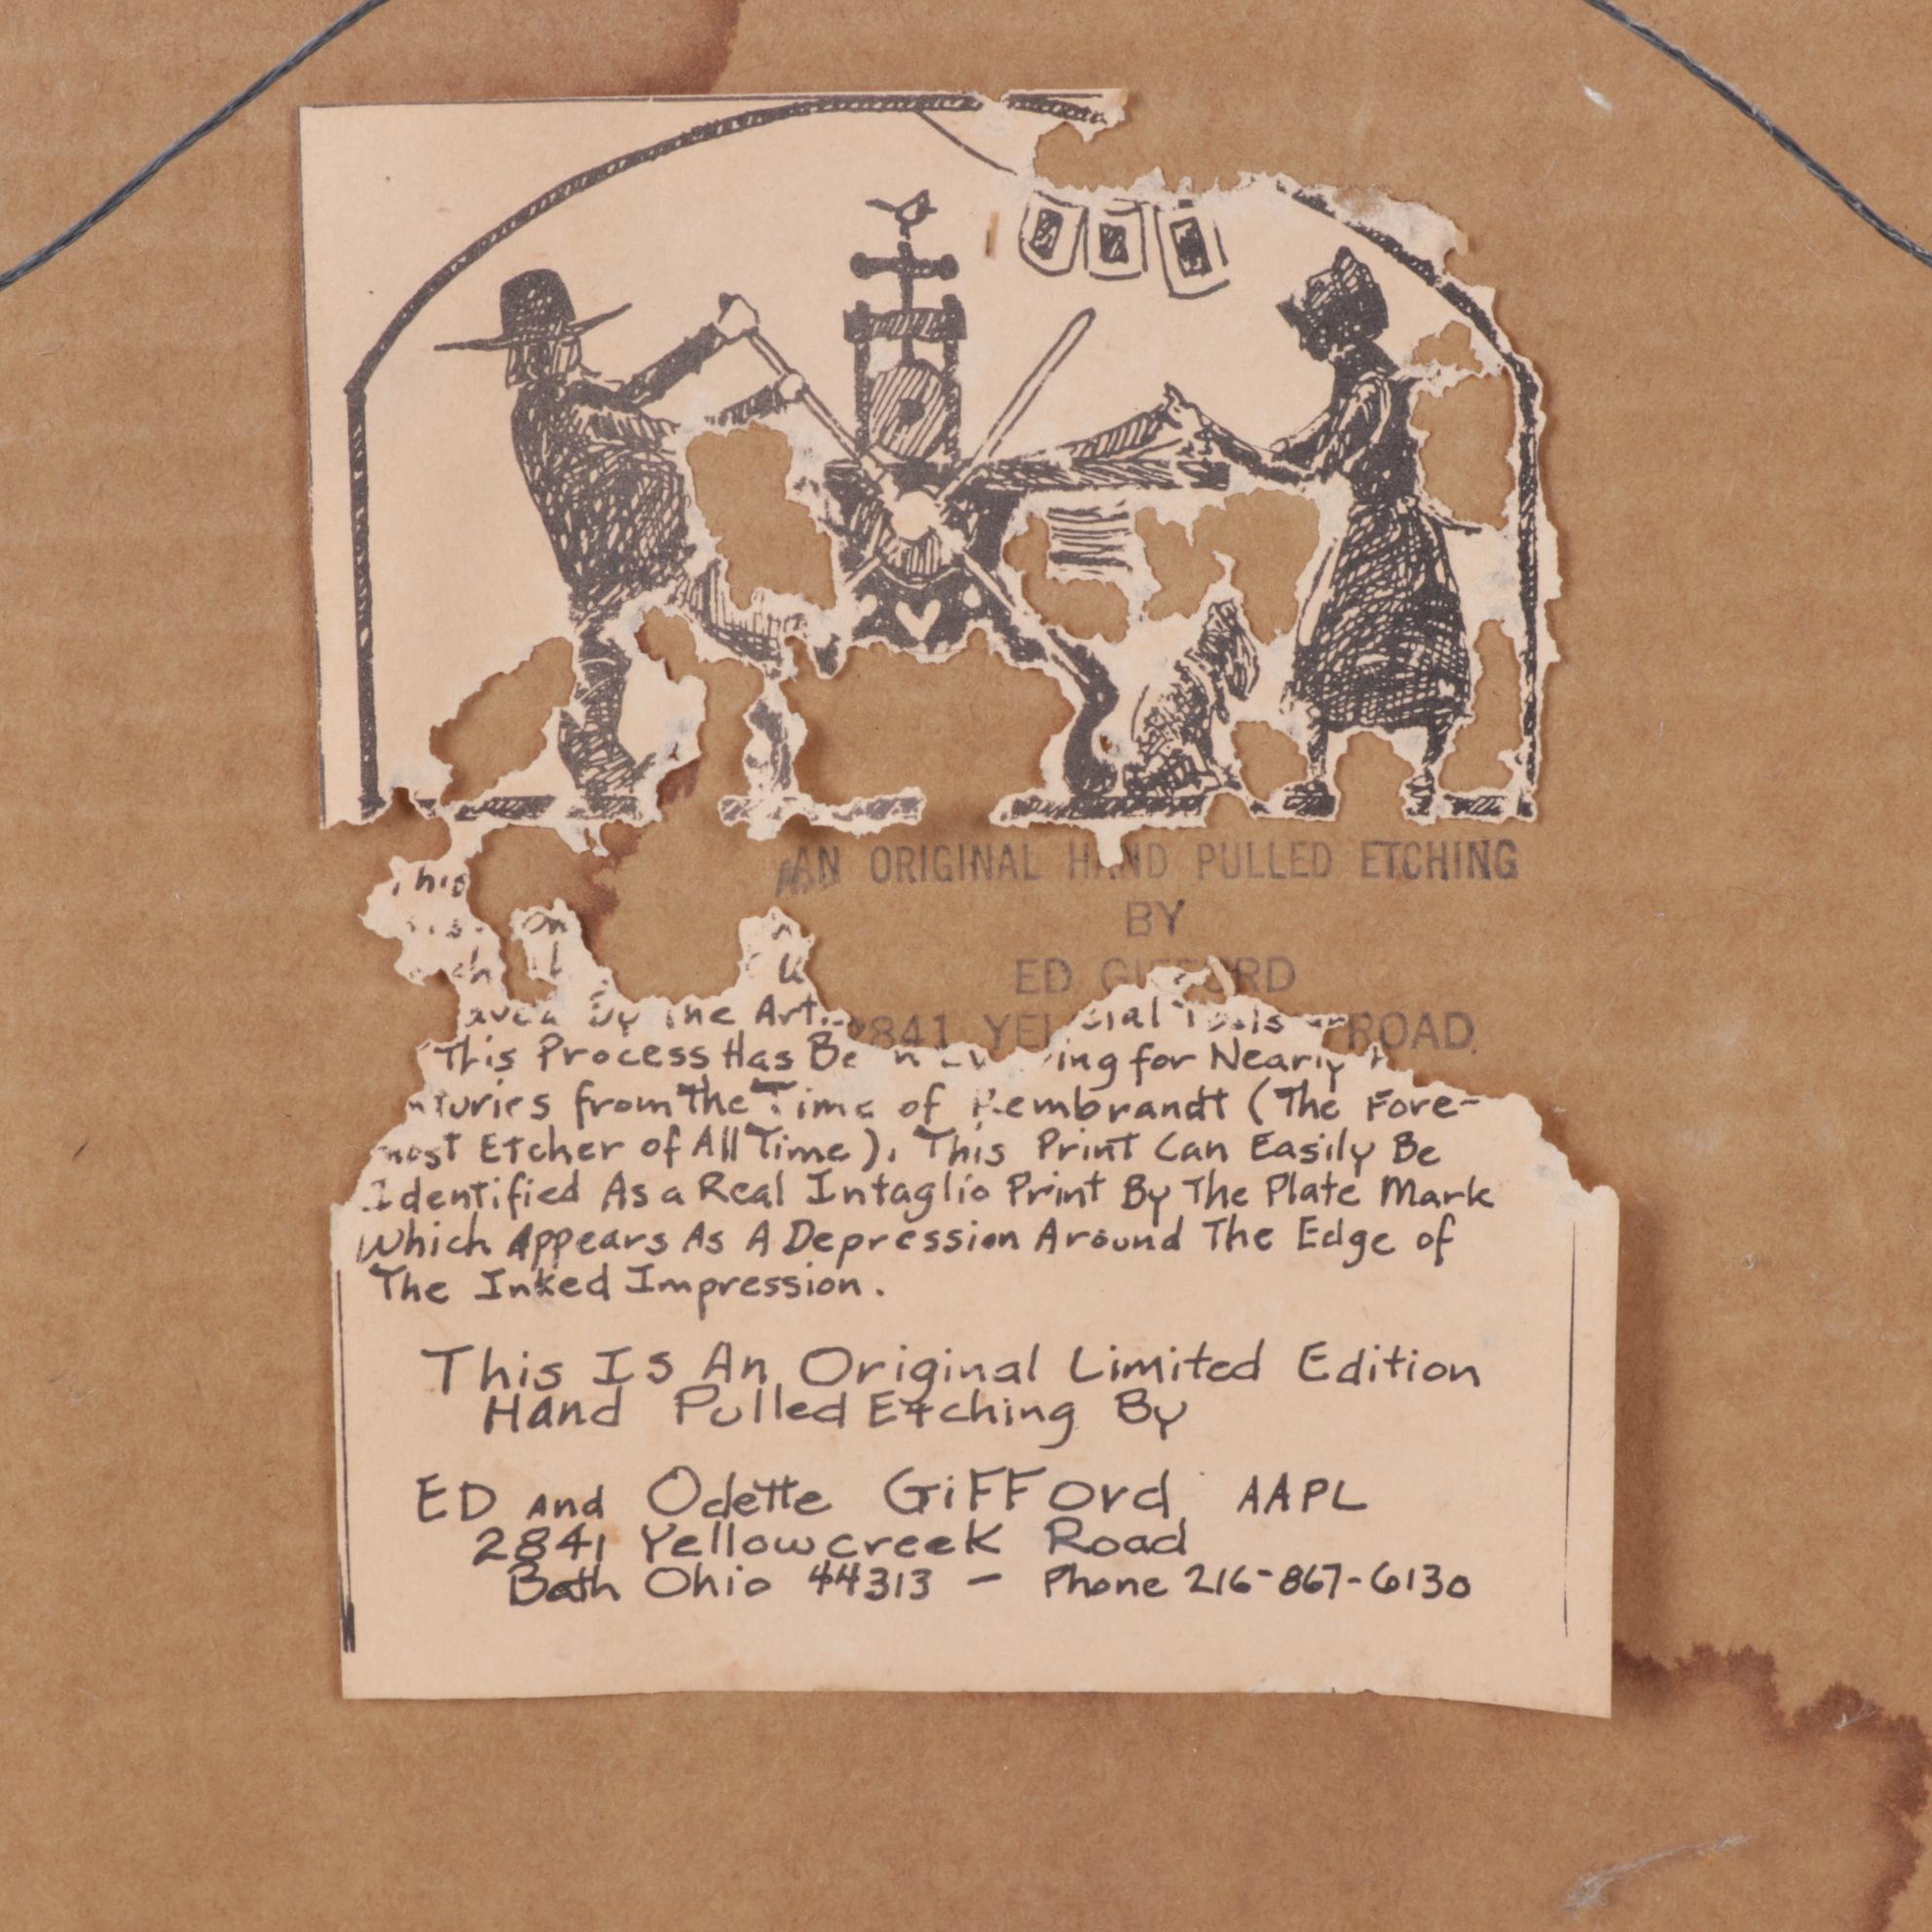 AN ORIGINAL HAND PULLED ETCHING
BY
ED GIFFORD
2841 ROAD
This
on
by the
This Process Has for Nearly
from The Time of Rembrandt (The Fore-
most Etcher of All Time). This Print Can Easily Be
Identified As a Real Intaglio Print By The Plate Mark
Which Appears As A Depression Around The Edge of
The Inked Impression.
This Is An Original Limited Edition
Hand Pulled Etching By
ED and Odette GiFFord AAPL
2841 Yellowcreek Road
Bath Ohio 44313 - Phone 216-867-6130